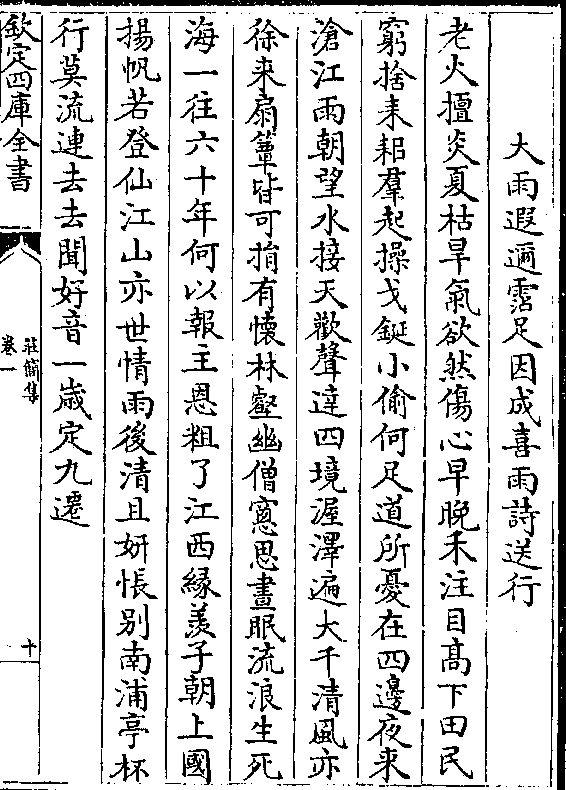 大雨遐邇霑足因成喜雨詩送行
老火擅炎夏枯旱氣欲然傷心早晚禾注目髙下田民
窮捨耒耜羣起操戈鋋小偷何足道所憂在四邊夜来
滄江雨朝望水接天歡聲達四境渥澤遍大千清風亦
徐来扇簟皆可捐有懐林壑幽僧窓思晝眠流浪生死
海一往六十年何以報主恩粗了江西縁羡子朝上國
揚帆若登仙江山亦世情雨後清且妍悵别南浦亭杯
行莫流連去去聞好音一歳定九遷
欽定四庫全書
莊簡集
卷一
十